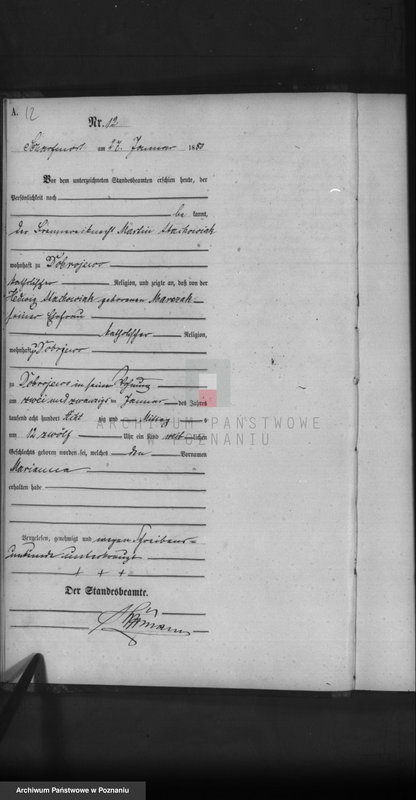 A. 12
Nr. 12
am 27. Januar 1880
Vor dem unterzeichneten Standesbeamten erschien heute, der
Persönlichkeit nach
be kannt,
der Brennereiknecht Martin Stachowiak
wohnhaft zu Dobrojewo
katholischer Religion, und zeigte an, daß von der
Hedwig Stachowiak geborenen Marczak
seiner Ehefrau
katholischer Religion,
wohnhaft zu Dobrojewo
zu Dobrojewo in seiner Wohnung
am zwei und zwanzigsten Januar des Jahres
tausend acht hundert acht zig und Mittag s
um 12 zwölf Uhr ein Kind weib lichen
Geschlechts geboren worden sei, welches den Vornamen
Marianna
erhalten habe
ARCHIWUM PAŃSTWOWE
W POZNANIU
Vorgelesen, genehmigt und wegen Schreibens-
unkunde unterkreuzt
+ + +
Der Standesbeamte.
Archiwum Państwowe w Poznaniu